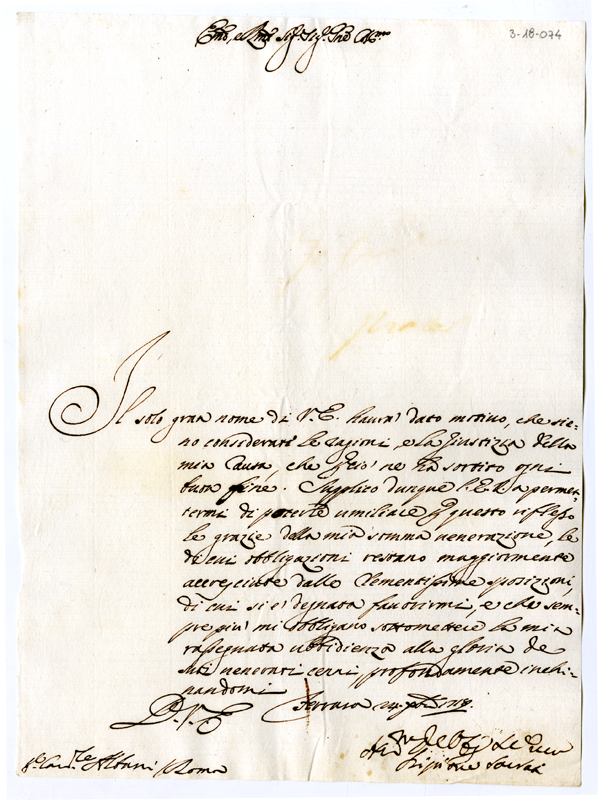 3-18-074
Il solo gran nome di V.E. haurà dato motivo, che sie-
no considerate le ragioni, e la giustizia della
mia Causa, che ne ha sortito ogni
buon fine. Supplico dunque l'E.V. a permet-
termi di poterle umiliare questo riflesso
le grazie della mia somma venerazione, le
di cui obbligazioni restano maggiormente
accresciute dalle clementissime
di cui si è degnata favorirmi, e che sem-
pre più mi obbligano sottomettere la mia
rassegnata ubbidienza alla gloria de
suoi venerati cenni, profondamente inchi-
nandomi
D.V.E. Ferrara
Albani Roma